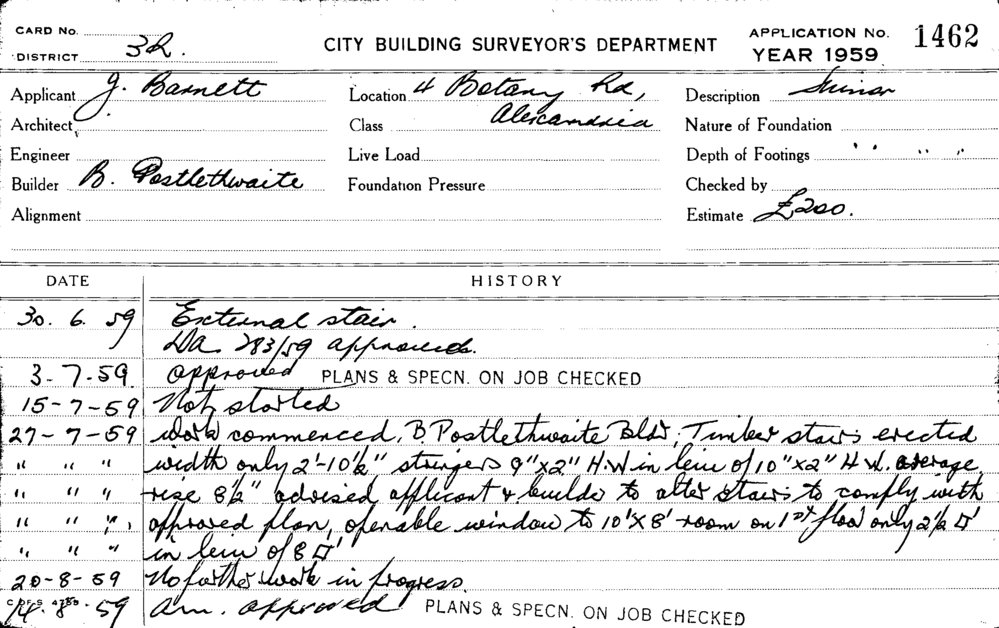 CARD No. APPLICATION No. 1462
DISTRICT 3h. CITY BUILDING SURVEYOR'S DEPARTMENT YEAR 1959
Applicant J. Barnett Location 4 Botany Rd, Description Minor
Architect Class Alexandria Nature of Foundation
Engineer Live Load Depth of Footings " " "
Builder B. Postlethwaite Foundation Pressure Checked by
Alignment Estimate £200.
DATE HISTORY
30. 6. 59 External stair.
DA. 283/59 approved.
3-7-59. approved PLANS & SPECN. ON JOB CHECKED
15-7-59 Not started
27-7-59 work commenced, B. Postlethwaite Bldr, Timber stairs erected
" " " width only 2'-10½" stringers 9"x2" H.W in lieu of 10"x2" H W. average
" " " rise 8½" advised applicant & builder to alter stairs to comply with
" " " approved plan, openable window to 10'x8' room on 1st floor only 2½ □'
" " " in lieu of 8 □'
20-8-59 No further work in progress.
8-59 am. approved PLANS & SPECN. ON JOB CHECKED